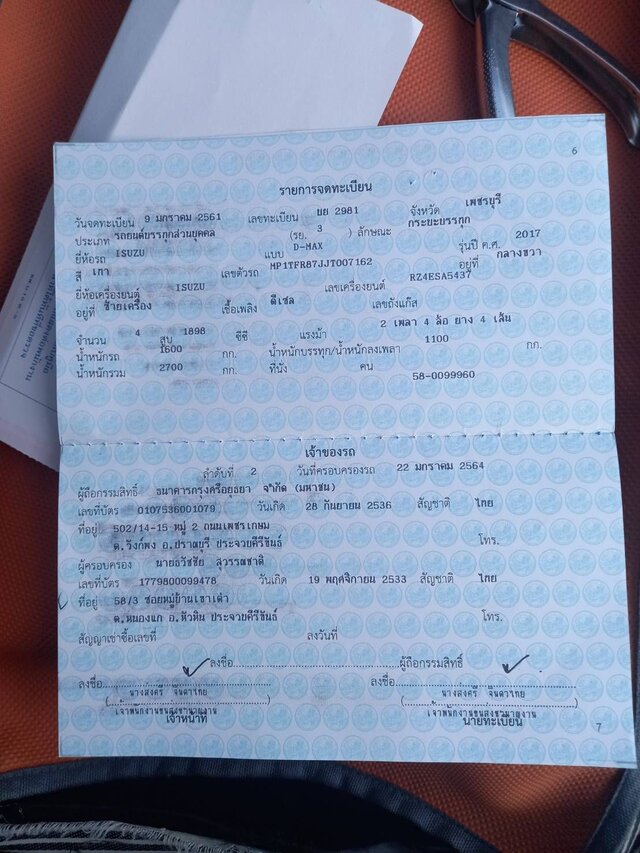 6
รายการจดทะเบียน
วันจดทะเบียน 9 มกราคม 2561 เลขทะเบียน ยย 2981 จังหวัด เพชรบุรี
ประเภท รถยนต์บรรทุกส่วนบุคคล (รย. 3 ) ลักษณะ กระยะบรรทุก
ยี่ห้อรถ ISUZU แบบ D-MAX รุ่นปี ค.ศ. 2017
สี เทา เลขตัวรถ MP1TFR87JJT007162 อยู่ที่ กลางขวา
ยี่ห้อเครื่องยนต์ ISUZU เลขเครื่องยนต์ RZ4ESA5437
อยู่ที่ ซ้ายเครื่อง เชื้อเพลิง ดีเซล เลขถังแก๊ส
จำนวน 4 สูบ 1898 ซีซี แรงม้า 2 เพลา 4 ล้อ ยาง 4 เส้น
น้ำหนักรถ 1600 กก. น้ำหนักบรรทุก/น้ำหนักลงเพลา 1100 กก.
น้ำหนักรวม 2700 กก. ที่นั่ง คน
58-0099960
เจ้าของรถ
ลำดับที่ 2 วันที่ครอบครองรถ 22 มกราคม 2564
ผู้ถือกรรมสิทธิ์ ธนาคารกรุงศรีอยุธยา จำกัด (มหาชน)
เลขที่บัตร 0107536001079 วันเกิด 28 กันยายน 2536 สัญชาติ ไทย
ที่อยู่ 502/14-15 หมู่ 2 ถนนเพชรเกษม
ต.วังก์พง อ.ปราณบุรี ประจวบคีรีขันธ์ โทร.
ผู้ครอบครอง นายธวัชชัย สุวรรณชาติ
เลขที่บัตร 1779800099478 วันเกิด 19 พฤศจิกายน 2533 สัญชาติ ไทย
ที่อยู่ 58/3 ซอยหมู่บ้านเขาเต่า
ต.หนองแก อ.หัวหิน ประจวบคีรีขันธ์ โทร.
สัญญาเช่าซื้อเลขที่ ลงวันที่
ลงชื่อ ผู้ถือกรรมสิทธิ์
ลงชื่อ ลงชื่อ
( นางสงศรี จินดาไทย ) ( นางสงศรี จินดาไทย )
เจ้าพนักงานขนส่งชำนาญงาน เจ้าพนักงานขนส่งชำนาญงาน
เจ้าหน้าที่ นายทะเบียน
7